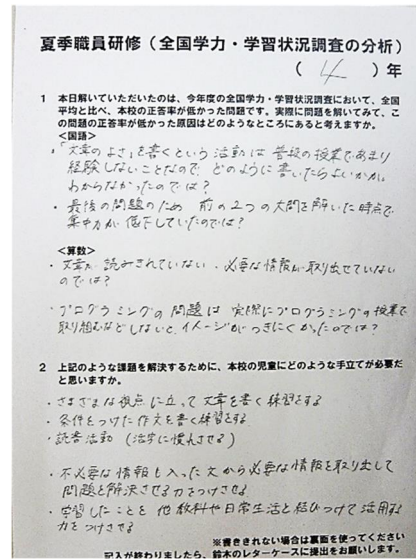 夏季職員研修（全国学力・学習状況調査の分析）
（ 4 ）年
1 本日解いていただいたのは、今年度の全国学力・学習状況調査において、全国
平均と比べ、本校の正答率が低かった問題です。実際に問題を解いてみて、こ
の問題の正答率が低かった原因はどのようなところにあると考えますか。
＜国語＞
・「文章のよさ」を書くという活動は普段の授業であまり
経験しないことなので、どのように書いたらよいかが、
わからなかったのでは？
・最後の問題のため 前の2つの大問を解いた時点で
集中力が低下していたのでは？
＜算数＞
・文章が読みきれていない・必要な情報が取り出せていない
のでは？
・プログラミングの問題は 実際にプログラミングの授業で
取り組むなどしないと、イメージがつきにくかったのでは？
2 上記のような課題を解決するために、本校の児童にどのような手立てが必要だ
と思いますか。
・さまざまな視点に立って文章を書く練習をする
・条件をつけた作文を書く練習をする
・読書活動（活字に慣れさせる）
・不必要な情報も入った文から必要な情報を取り出して
問題を解決させる力をつけさせる
・学習したことを他教科や日常生活と結びつけて活用する
力をつけさせる
※書ききれない場合は裏面を使ってください
記入が終わりましたら、鈴木のレターケースに提出をお願いします。